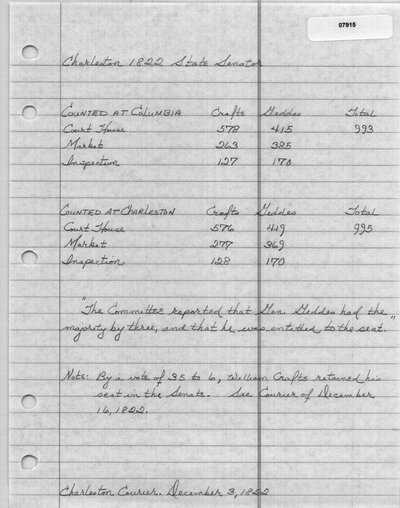 07915
Charleston 1822 State Senator
COUNTED AT COLUMBIA Crafts Geddes Total
Court House 578 415 993
Market 263 385
Inspection 127 170
COUNTED AT CHARLESTON Crafts Geddes Total
Court House 576 419 995
Market 277 369
Inspection 128 170
"The Committee reported that Gen. Geddes had the
majority by three, and that he was entitled to the seat."
Note: By a vote of 35 to 6, William Crafts retained his
seat in the Senate. See Courier of December
16, 1822.
Charleston Courier. December 3, 1822